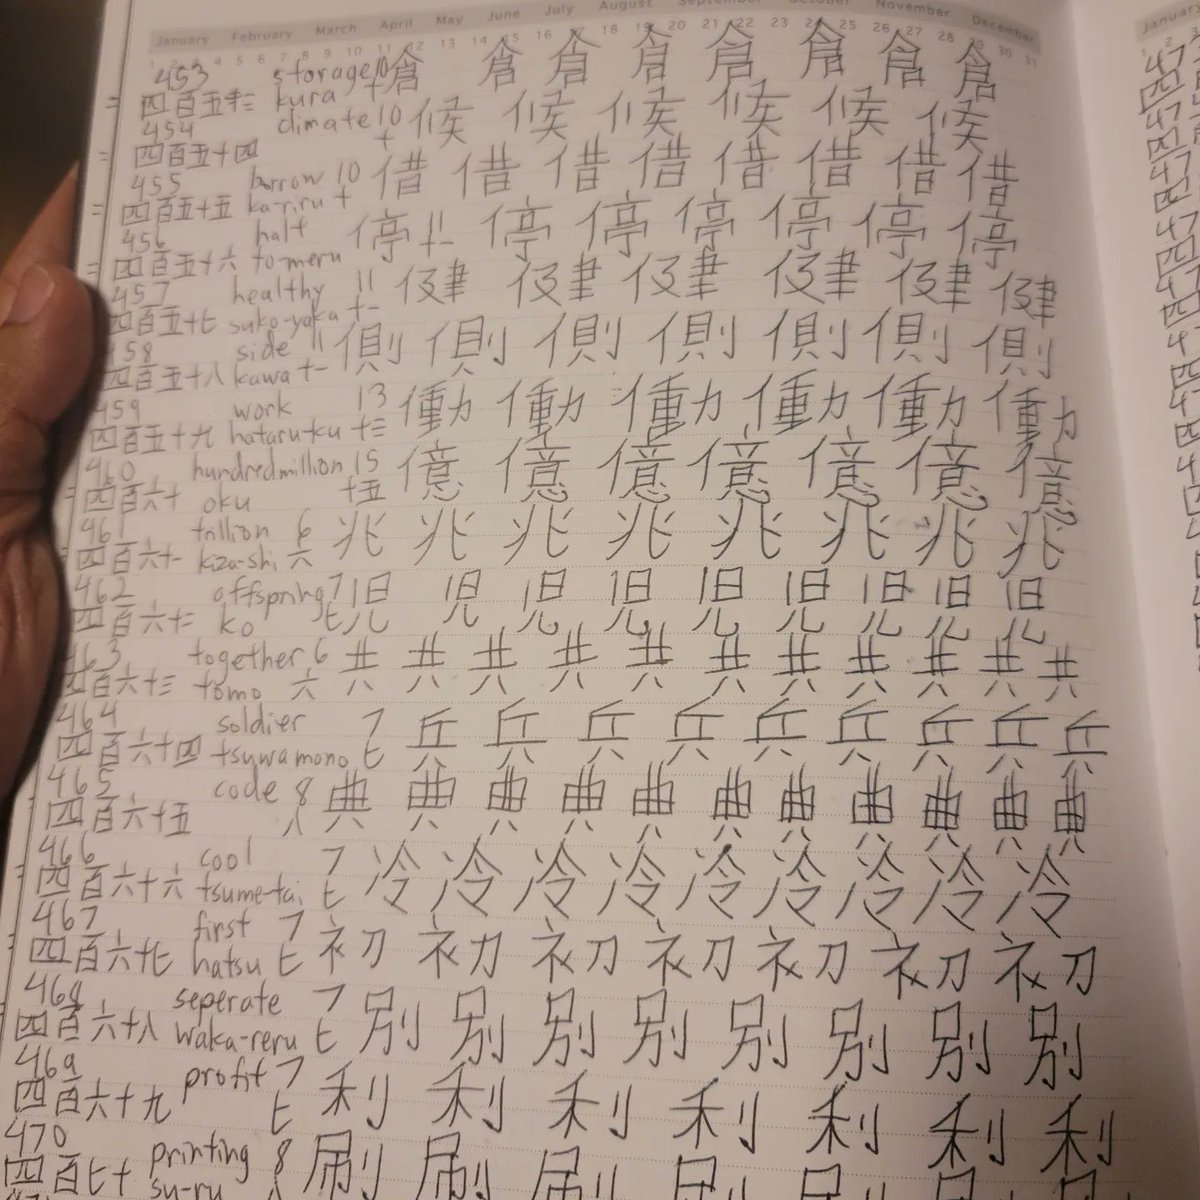 January February March April May June July August September October November December
1 2 3 4 5 6 7 8 9 10 11 12 13 14 15 16 17 18 19 20 21 22 23 24 25 26 27 28 29 30 31
453 storage 10 倉 倉 倉 倉 倉 倉 倉 倉
四百五十三 kura 十
454 climate 10 候 候 候 候 候 候 候
四百五十四 十
455 borrow 10 借 借 借 借 借 借 借 借
四百五十五 ka-riru 十
456 halt 停 11 停 停 停 停 停 停
四百五十六 to-meru 十一
457 healthy 11 健 健 健 健 健 健
四百五十七 suko-yaka 十一
458 side 11 側 側 側 側 側 側 側
四百五十八 kawa 十一
459 work 13 働 働 働 働 働 働 働
四百五十九 hataru-ku 十三
460 hundred million 15 億 億 億 億 億 億 億
四百六十 oku 十五
461 trillion 6 兆 兆 兆 兆 兆 兆 兆 兆
四百六十一 kiza-shi 六
462 offspring 7 児 児 児 児 児 児 児 児 児
四百六十二 ko 七
463 together 6 共 共 共 共 共 共 共 共 共 共 共
四百六十三 tomo 六
464 soldier 7 兵 兵 兵 兵 兵 兵 兵 兵 兵
四百六十四 tsuwamono 七
465 code 8 典 典 典 典 典 典 典 典 典 典 典
四百六十五 八
466 cool 7 冷 冷 冷 冷 冷 冷 冷 冷 冷
四百六十六 tsume-tai 七
467 first 7 初 初 初 初 初 初 初
四百六十七 hatsu 七
468 seperate 7 別 別 別 別 別 別 別 別
四百六十八 waka-reru 七
469 profit 7 利 利 利 利 利 利 利
四百六十九 七
470 printing 8 刷 刷 刷 刷 刷 刷 刷
四百七十 su-ru 八